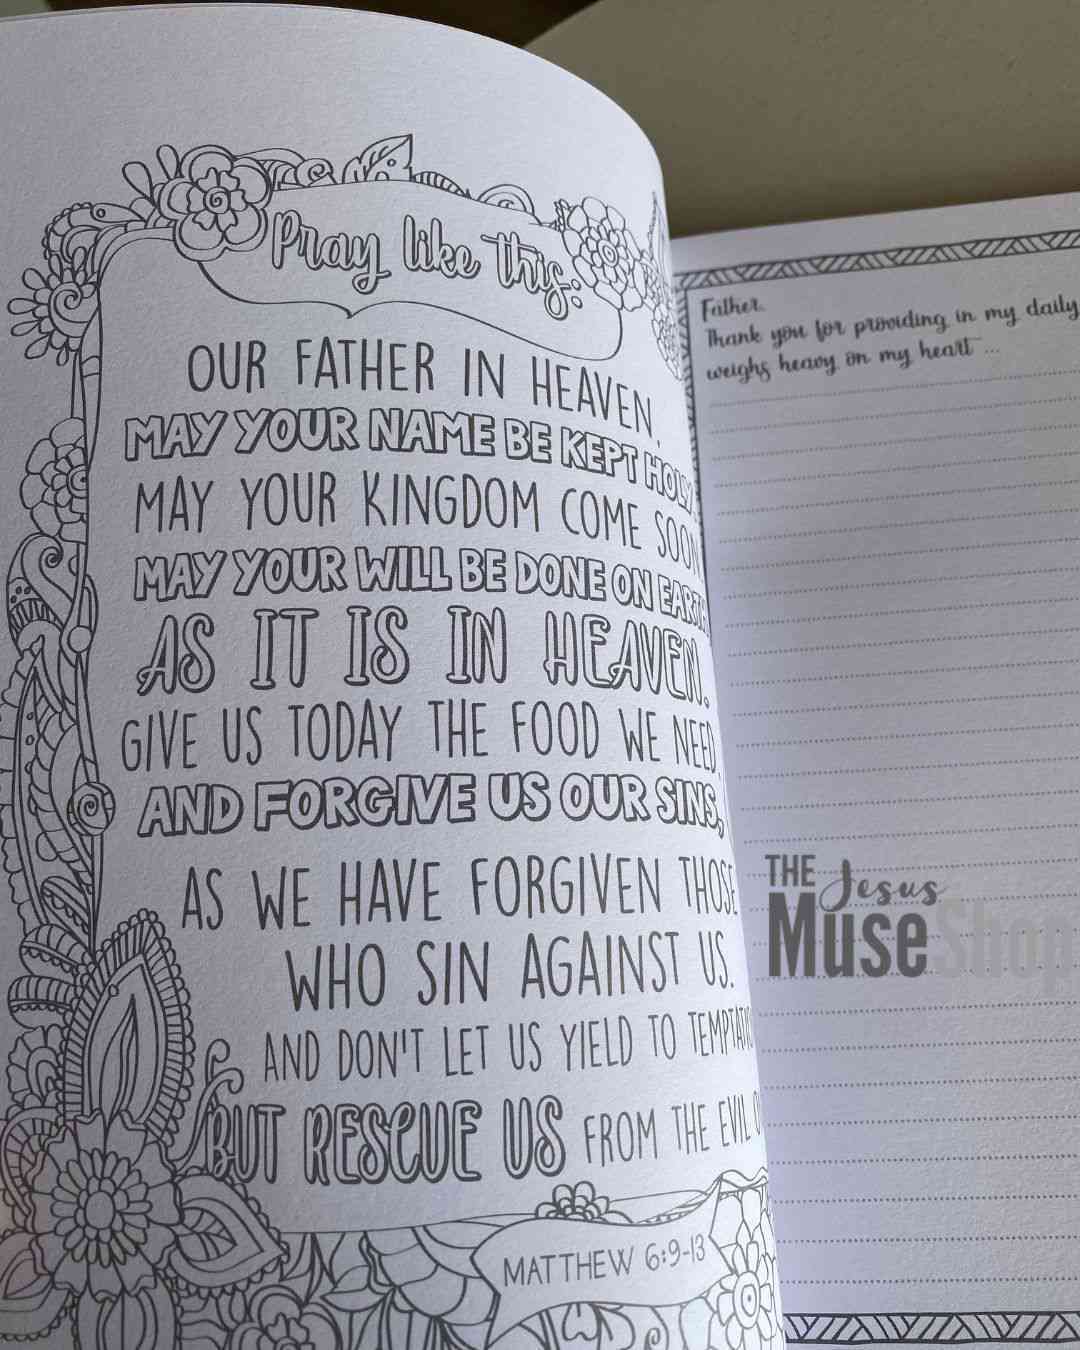 Pray like this:
OUR FATHER IN HEAVEN,
MAY YOUR NAME BE KEPT HOLY.
MAY YOUR KINGDOM COME SOON.
MAY YOUR WILL BE DONE ON EARTH
AS IT IS IN HEAVEN.
GIVE US TODAY THE FOOD WE NEED,
AND FORGIVE US OUR SINS,
AS WE HAVE FORGIVEN THOSE
WHO SIN AGAINST US.
AND DON'T LET US YIELD TO
BUT RESCUE US FROM THE EVIL
MATTHEW 6:9-13
Father,
Thank you for providing in my daily
weighs heavy on my heart ...
THE Jesus
Muse Shop